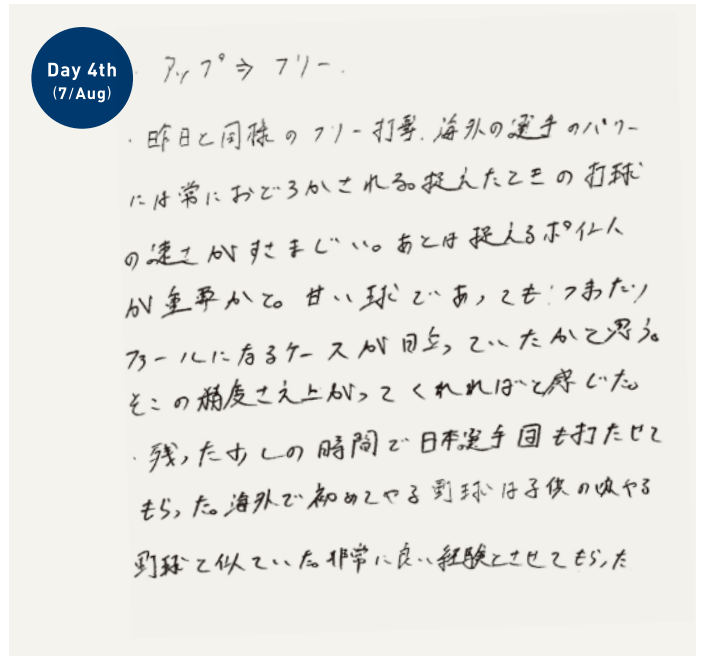 Day 4th
(7/Aug)
・アップ⇒フリー.
・昨日と同様のフリー打撃.海外の選手のパワー
には常におどろかされる。捉えたときの打球
の速さがすさまじい。あとは捉えるポイント
が重要かと。甘い球であっても、つまったり
ファールになるケースが目立っていたかと思う。
そこの精度さえ上がってくれればと感じた。
・残った少しの時間で日本選手団も打たせて
もらった。海外で初めてやる野球は子供の頃やる
野球と似ていた。非常に良い経験とさせてもらった